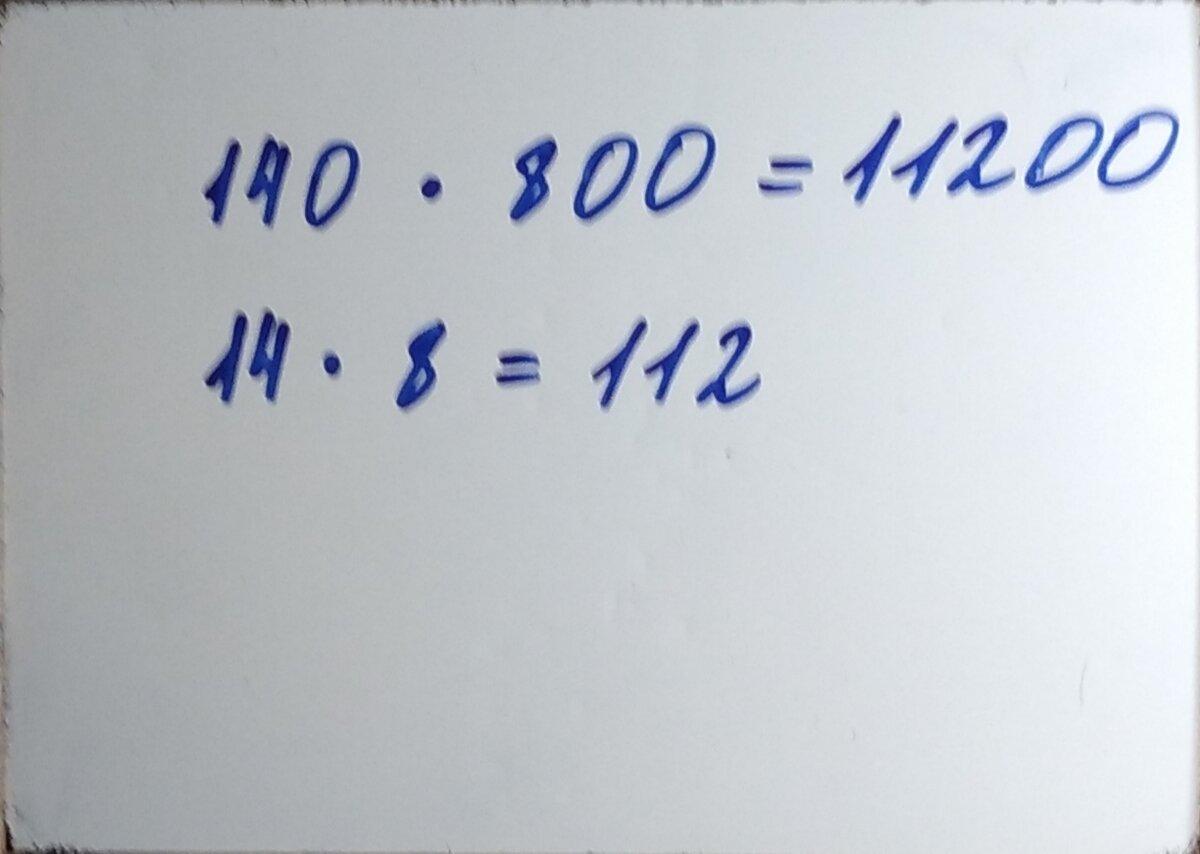 140 · 800 = 11200
14 · 8 = 112